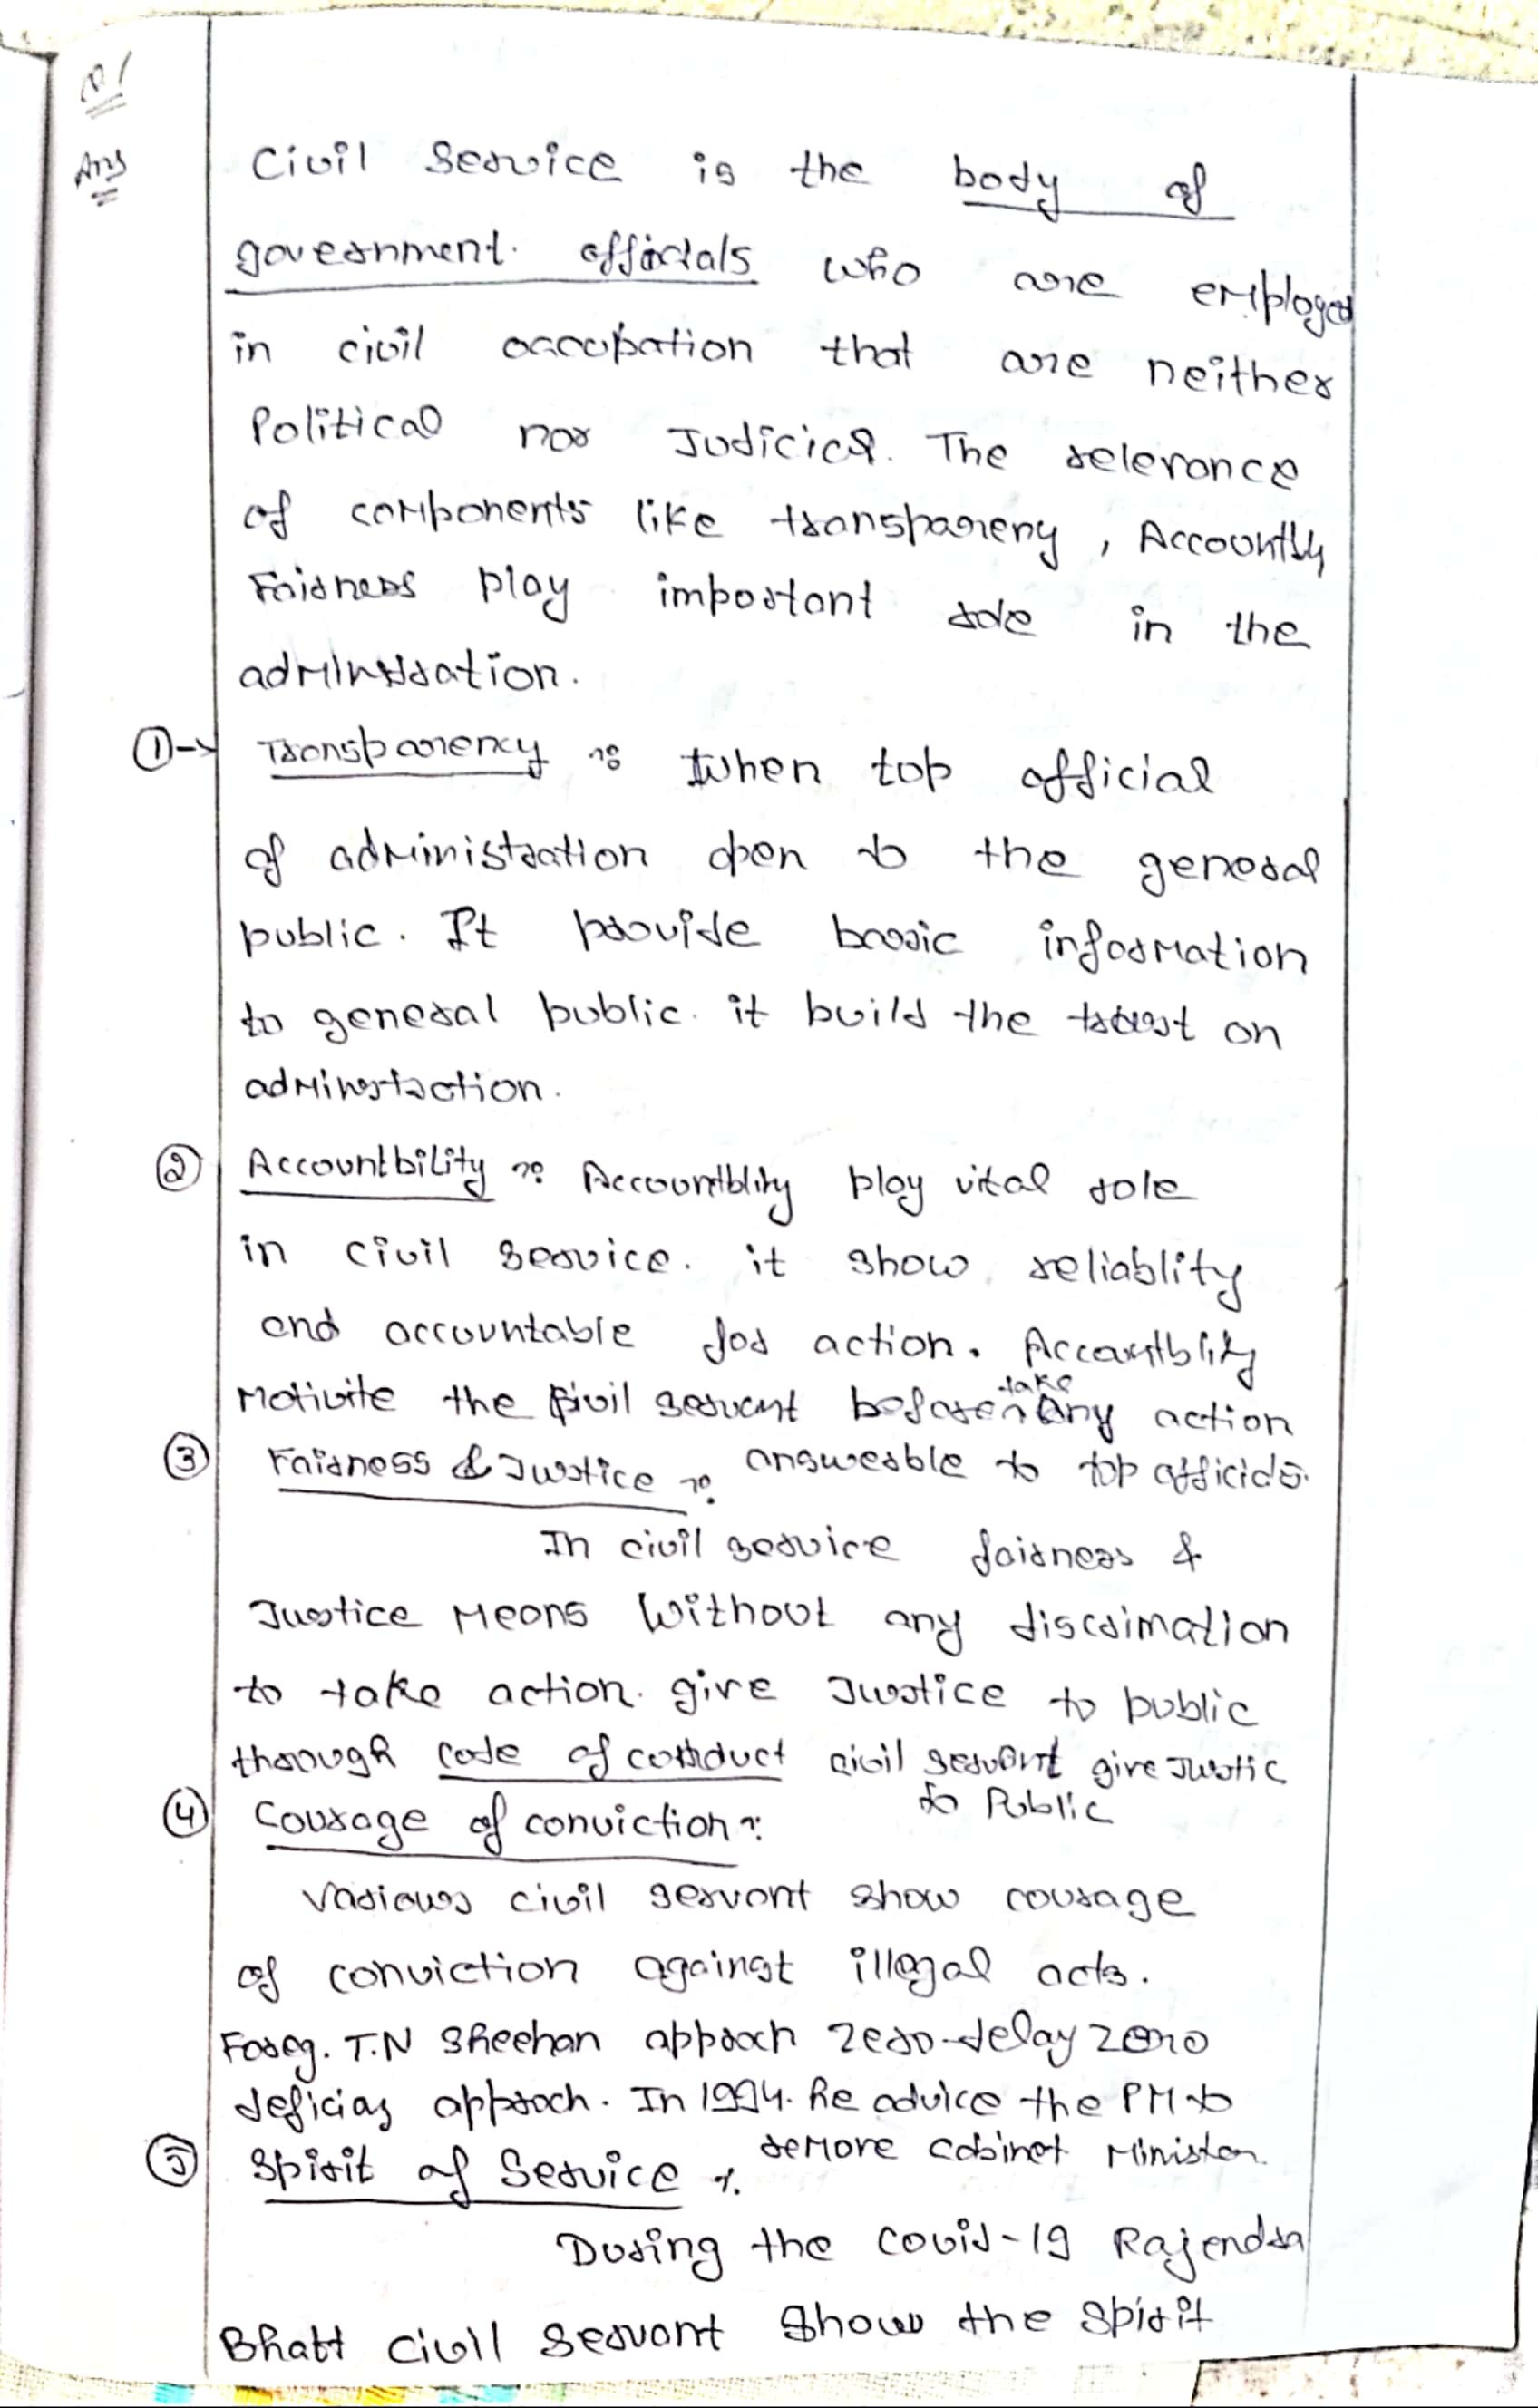 Q1
Ans
Civil Service is the body of
government officials who are employed
in civil occupation that are neither
Political nor Judicial. The relevance
of components like transparency, Accountbly
Fairness play important role in the
adminstration.
①→ Transparency :: When top official
of administration open to the general
public. It provide bassic information
to general public. it build the trust on
adminstration.
② Accountbility :: Accountblity play vital role
in civil service. it show reliablity
and accountable for action. Accountblity
Motivite the civil servant before take any action
answerable to top officials.
③ Fairness & Justice ::
In civil service fairness &
Justice Means Without any discrimation
to take action. give Justice to public
through code of conduct civil servant give Justic
to Public
④ Courage of conviction ::
Various civil servant show courage
of conviction against illegal acts.
For eg. T.N Sheehan approch zero-delay zero
deficiay approch. In 1994. he advice the PM to
remove cabinet Minister.
⑤ Spirit of Service :.
During the Covid-19 Rajendra
Bhatt civil servant show the spirit